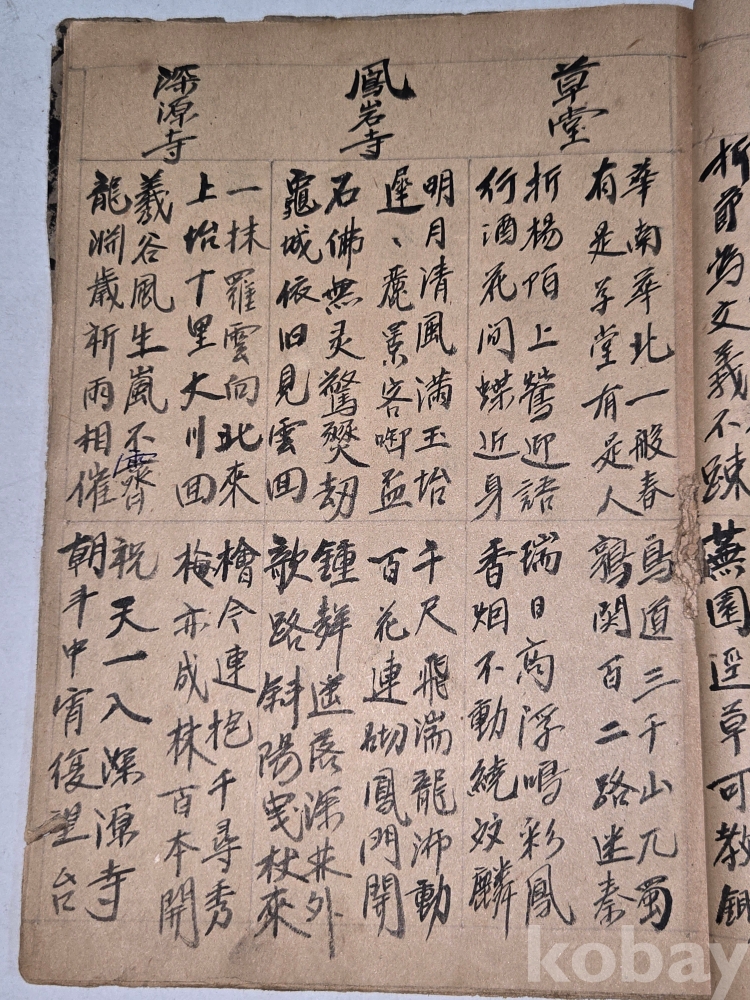 折角為文義不踈
蕪園逕草可教鋤
草堂
華南華北一般春
有是草堂有是人
折楊陌上鶯迎語
行酒花間蝶近身
鳥道三千山兀蜀
関百二路迷秦
瑞日高浮鳴彩鳳
香烟不動繞麟
鳳岩寺
明月清風滿玉坮
遲ヽ麗景客啣盃
石佛無灵驚劫
龜城依旧見雲回
千尺飛湍龍沛動
百花連砌鳳門開
鍾聲遥落深林外
歌路斜陽曳杖來
深源寺
一抹羅雲向北來
上坮十里大川回
羲谷風生嵐不霽
龍淵歲祈雨相催
檜今連抱千尋秀
梅亦成林百本開
祝天一入深源寺
朝斗中宵復望台
kobay